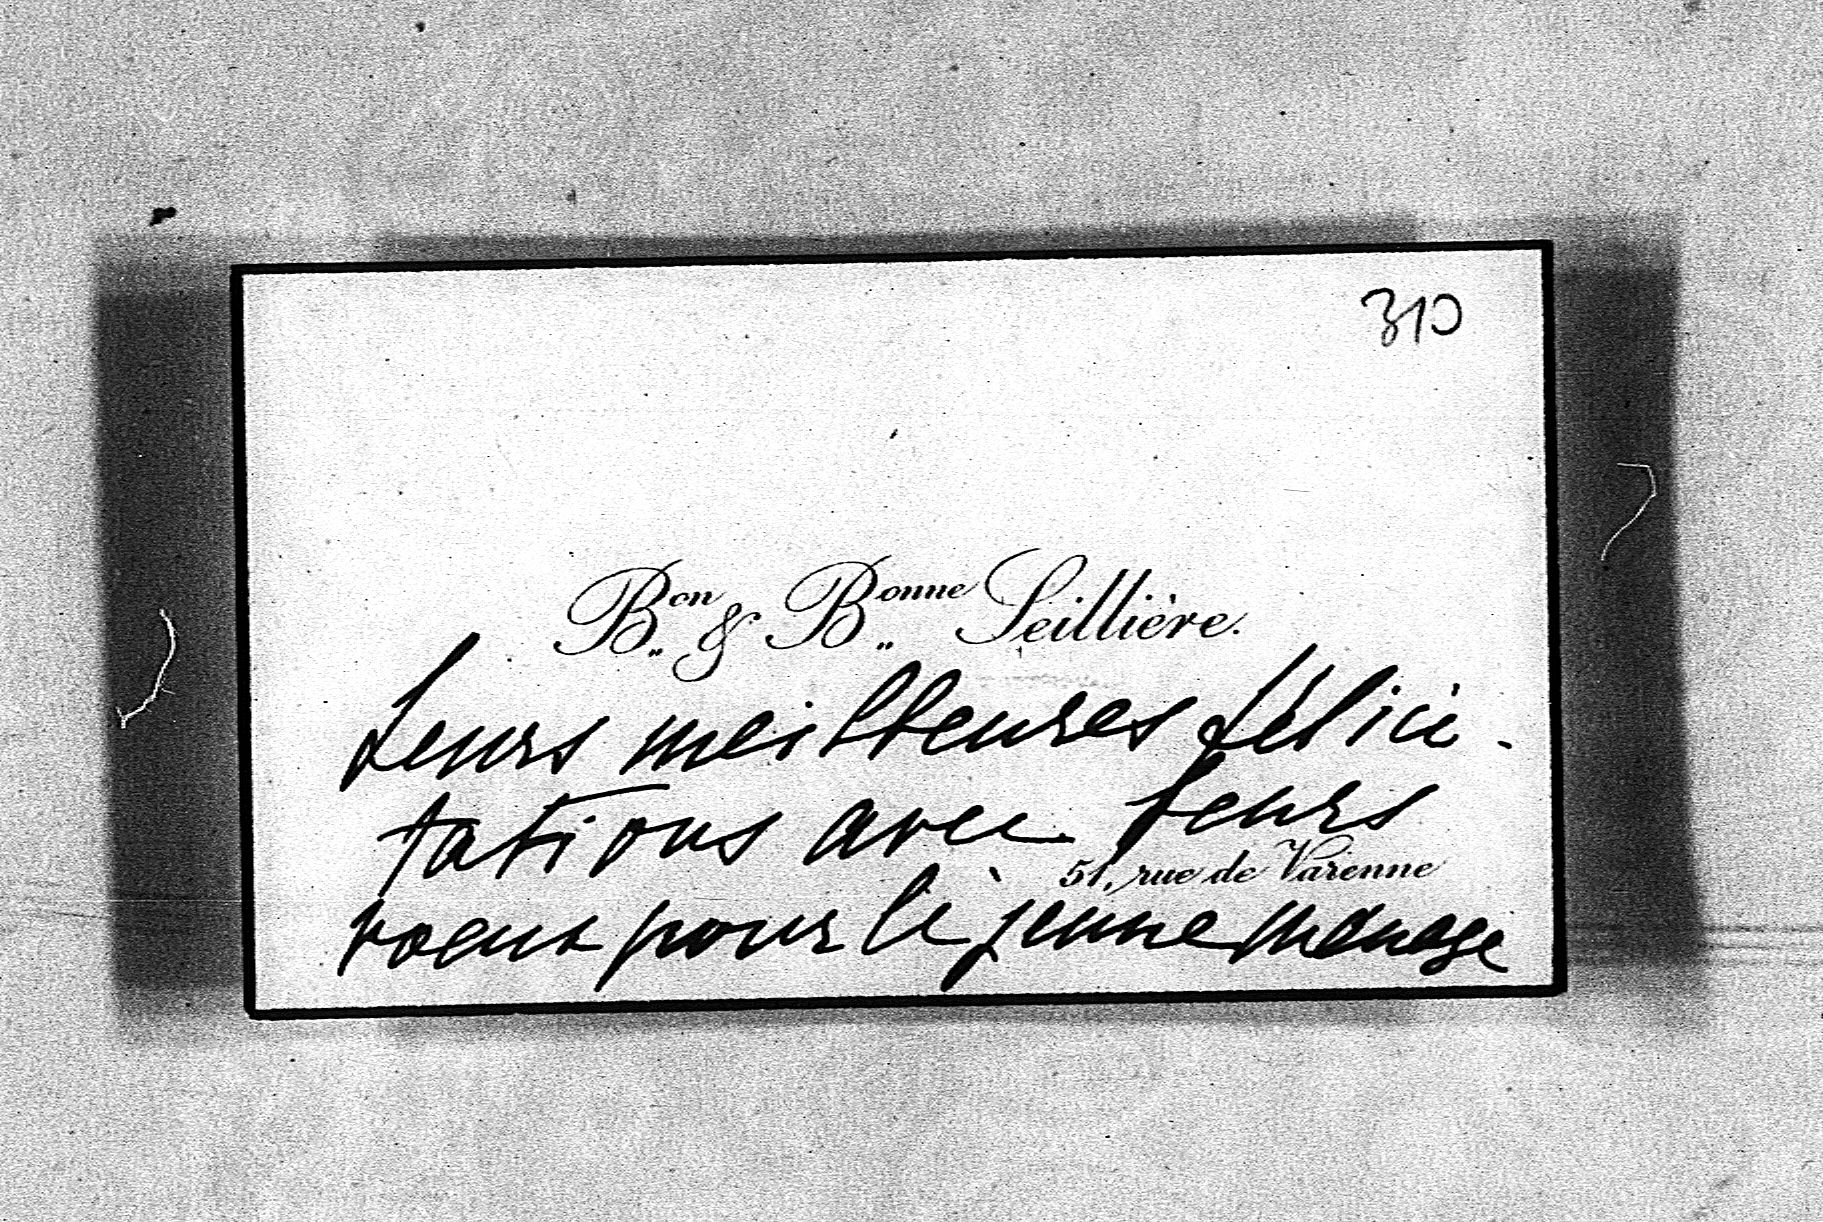 310
Bon & Bonne Seillière.
Leurs meilleures félici-
tations avec leurs
51, rue de Varenne
voeux pour le jeune ménage